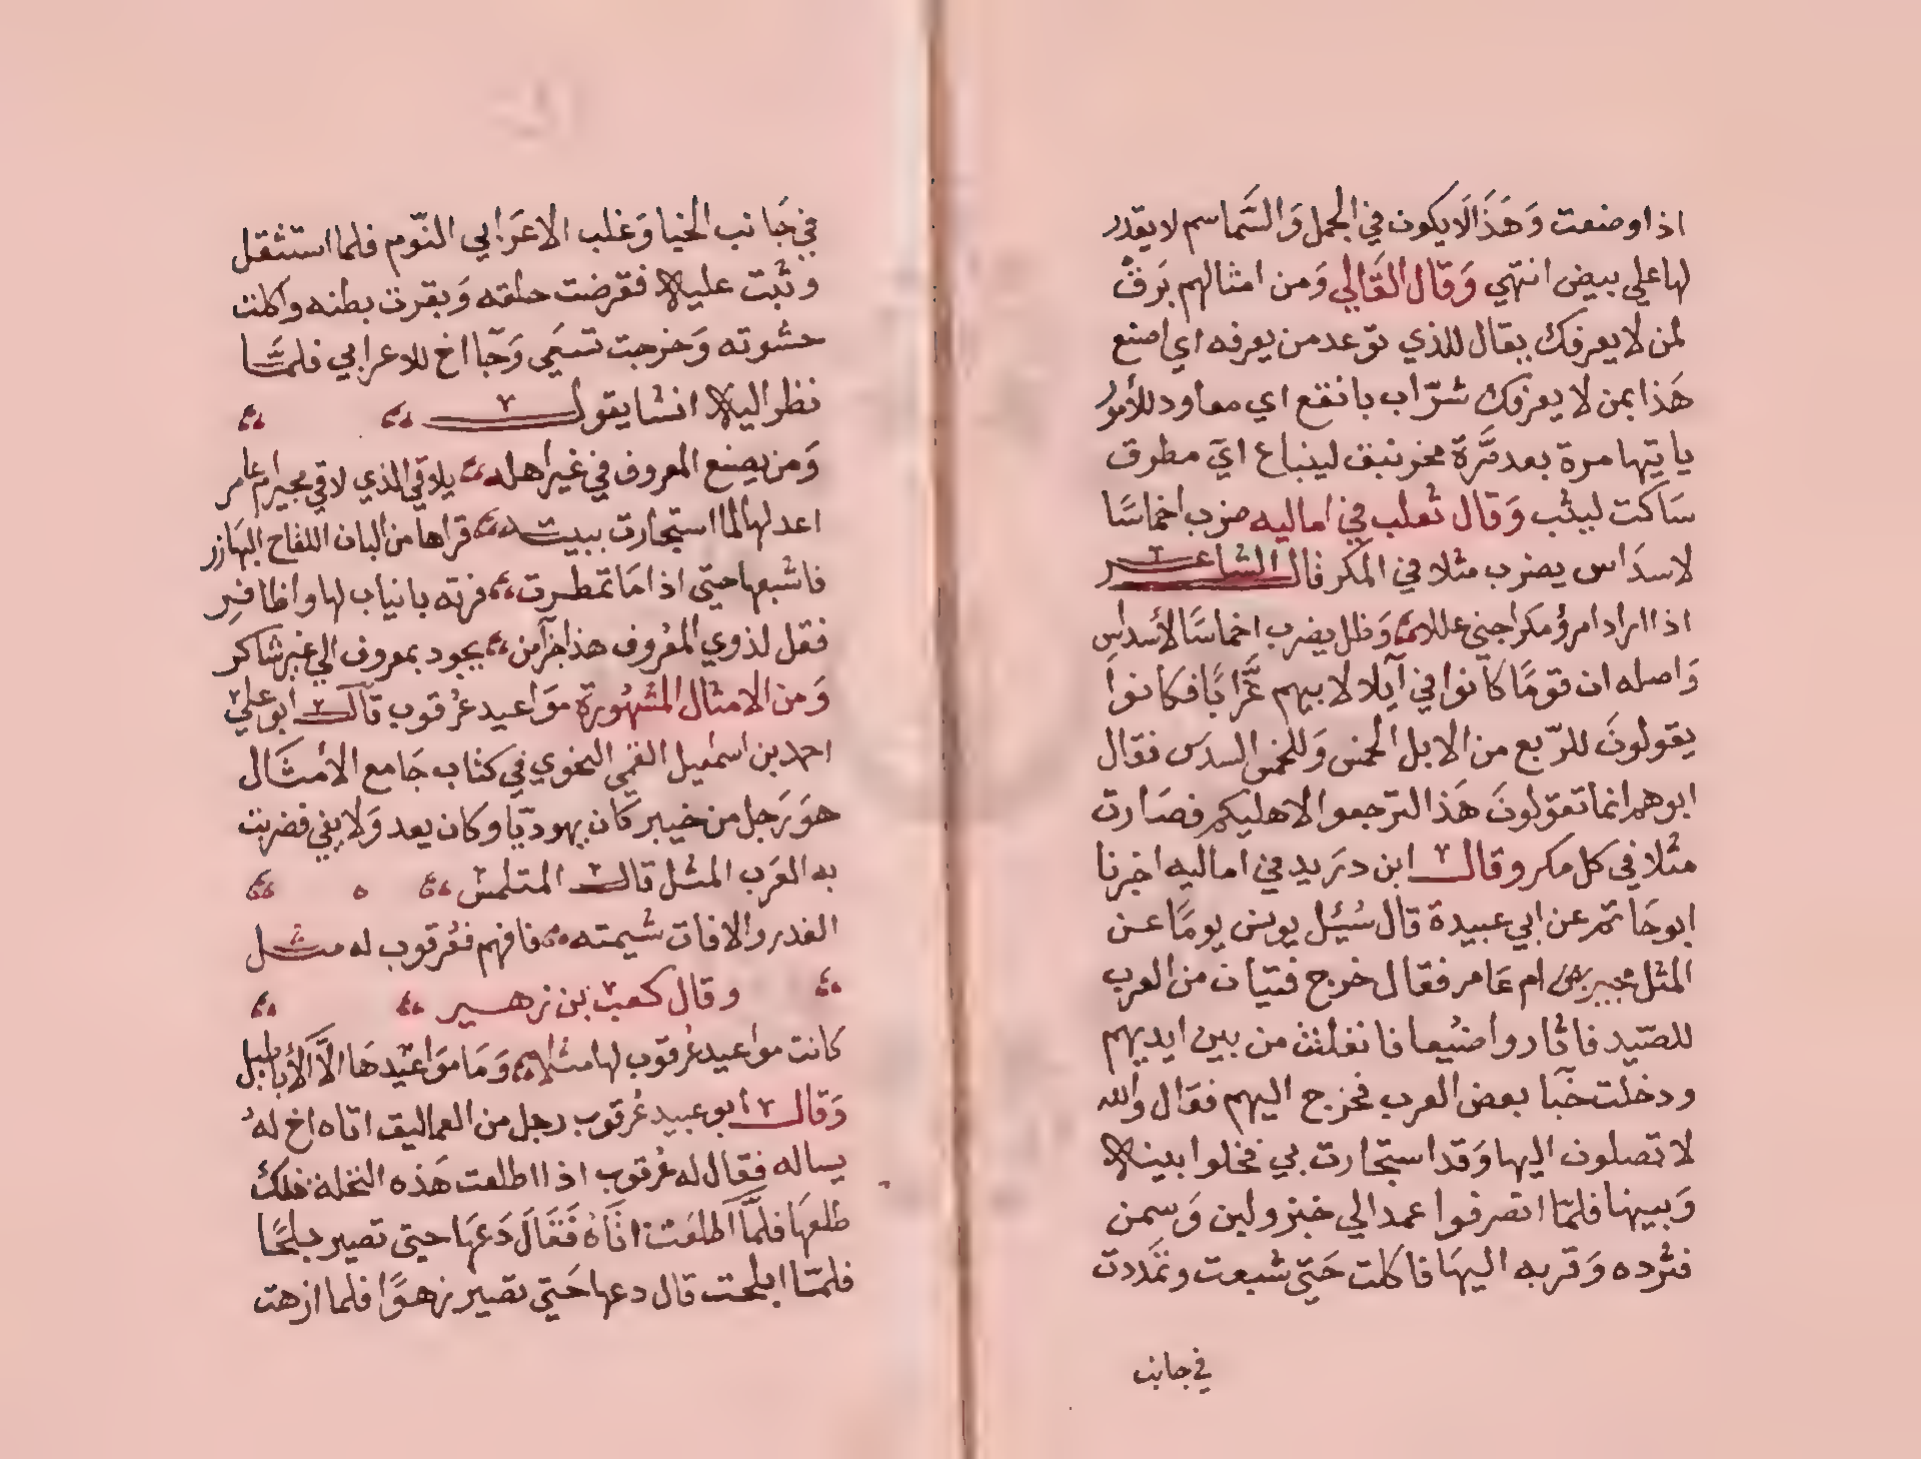 اذا وضعت وَهَذَا لَا يكون في الجمل وَالسَّمَاسم لا يقدر
لها على بيض انتهي وَقَال القَالي وَمن امثالهم بَرق
لمن لا يعرفك يقال للذي توعد من يعرفه اي اصنع
هَذا بمن لا يعرفك شرّاب بانقع اي معاود للأمور
ياتيها مرة بعد مَرّة مخرنبق لينباع ايَ مطرق
سَاكت ليثب وَقَال ثعلب في اماليه ضرب اخماسًا
لاسدَاس يضرب مثلا في المكر قال الشاعر
اذا اراد امرؤ مكرا جني عللا وَظل يضرب اخماسًا لأسداسِ
وَاصله ان قومًا كانوا في آبلا لابيهم عُزَّابًا فكانوا
يقولونَ للرّبع من الابل الخمس وَللخمس السدس فقال
ابوهم انما تقولونَ هَذا لترجعوا لاهليكم فصَارت
مثلا في كل مكر وقال ابن دريد في اماليه اخبرنا
ابو حَاتم عن ابي عبيدة قال سُئل يونس يومًا عن
المثل مجير ام عَامر فقال خرج فتيان من العرب
للصّيد فاثاروا ضبُعا فانفلتت من بين ايديهم
ودخلت خبَا بعض العرب فخرج اليهم فقال والله
لا تصلون اليها وَقد استجارت بي فخلوا بينه
وَبينها فلمّا انصرفوا عمد الي خبز ولبن وَسمن
فثرده وَقربه اليهَا فاكلت حَتي شبعت وتمَددت
في جانب
في جَانب الخبا وَغلب الاعرَابي النّوم فلما استثقل
وثبت عليه فقرضت حلقه وَبقرت بطنه واكلت
حشوته وَخرجت تسعَي وَجَا اخ للاعرابي فلمّا
نظر اليه انشا يقول
وَمن يصنع المعروف في غير اهله يلاقي الذي لاقي مجير ام عامر
اعد لها لما استجارت ببيته قراها من البان اللقاح البهازر
فاشبعها حتي اذا مَا تمطرت فرته بانياب لها واظافرِ
فقل لذوي المعروف هذا جزآ من يجود بمعروف الي غير شاكر
وَمن الامثال المشهُورة موَاعيد عُرقوب قال ابو علي
احمد بن اسمعيل القمي النحوي في كتاب جَامع الأمثَال
هوَ رَجل من خيبر كَان يهوديّا وكان يعد وَلا يفي فضربت
به العَرب المثل قال المتلمس
الغدر والافات شيمته فافهم فعُرقوب له مثل
وقال كعب بن زهير
كانت مواعيد عُرقوب لها مثلا وَمَا موَاعيدهَا الَّا الأباطيل
وَقال ابو عبيد عُرقوب رجل من العماليق اتاه اخ لهُ
يساله فقال له عُرقوب اذا اطلعت هَذه النخلة فلك
طلعهَا فلَمَّا اطلعَت اتَاهُ فَقَالَ دَعهَا حتي تصير بلحًا
فلمّا ابلحت قال دعها حَتي تصير زهوًا فلما ازهت